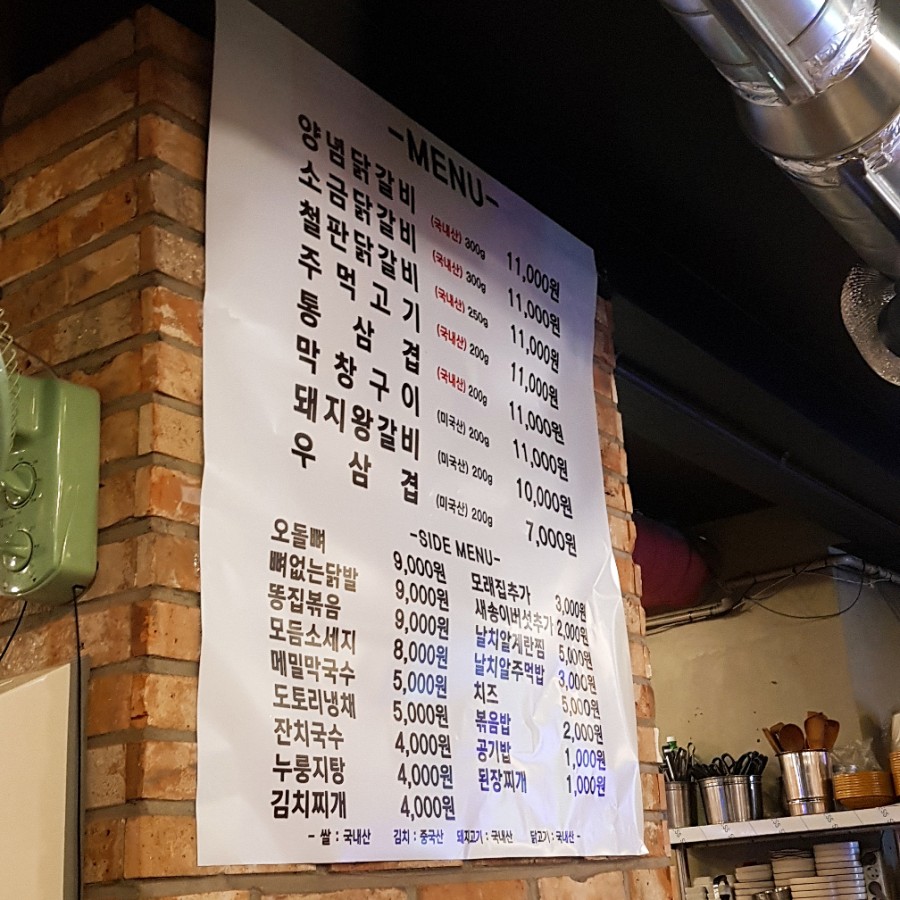 -MENU-
양념닭갈비 (국내산) 300g 11,000원
소금닭갈비 (국내산) 300g 11,000원
철판닭갈비 (국내산) 250g 11,000원
주먹고기 (국내산) 200g 11,000원
통삼겹 (국내산) 200g 11,000원
막창구이 (미국산) 200g 11,000원
돼지왕갈비 (미국산) 200g 10,000원
우삼겹 (미국산) 200g 7,000원
-SIDE MENU-
오돌뼈 9,000원
뼈없는닭발 9,000원
똥집볶음 9,000원
모듬소세지 8,000원
메밀막국수 5,000원
도토리냉채 5,000원
잔치국수 4,000원
누룽지탕 4,000원
김치찌개 4,000원
모래집추가 3,000원
새송이버섯추가 2,000원
날치알계란찜 5,000원
날치알주먹밥 3,000원
치즈 5,000원
볶음밥 2,000원
공기밥 1,000원
된장찌개 1,000원
- 쌀 : 국내산 김치 : 중국산 돼지고기 : 국내산 닭고기 : 국내산 -